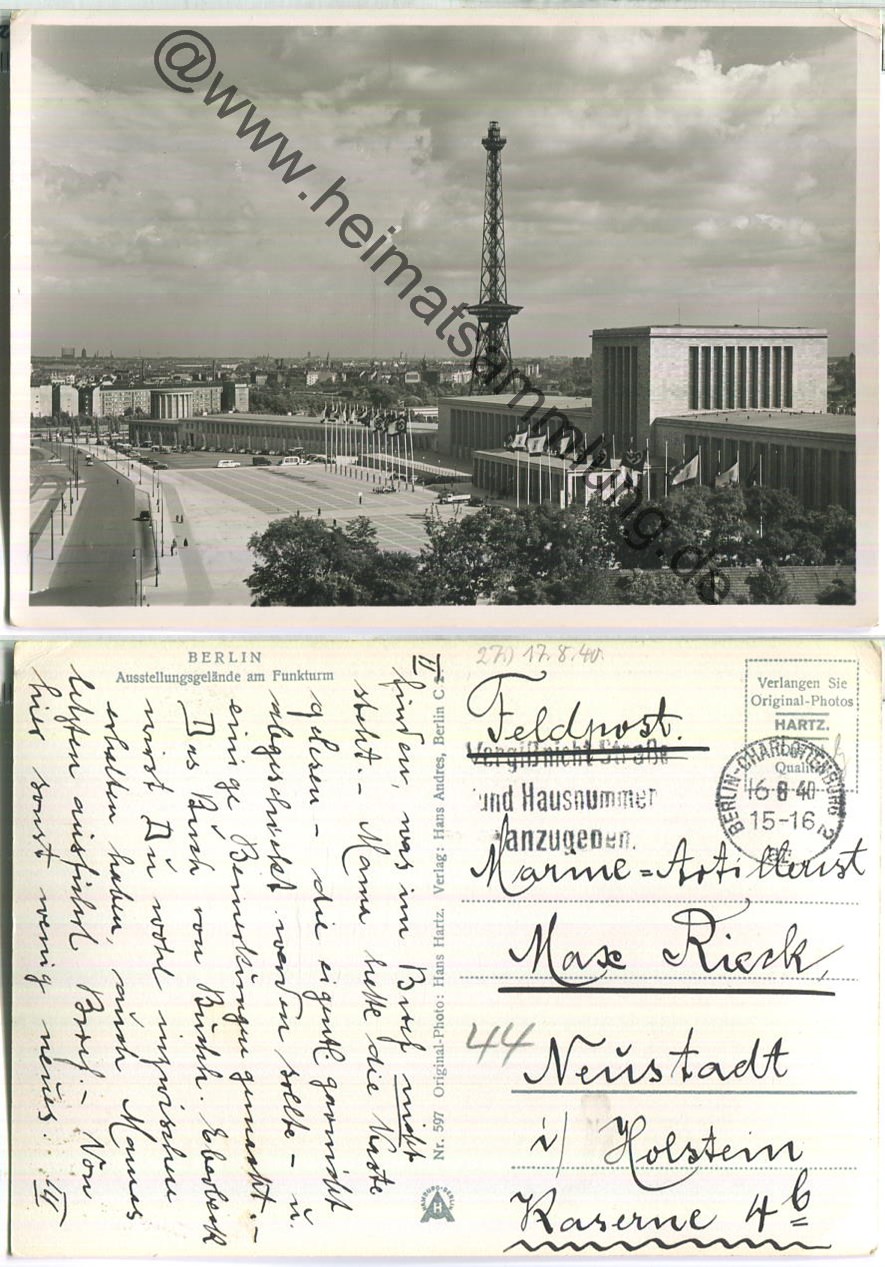 @www.heimatsammlung.de
BERLIN
Ausstellungsgelände am Funkturm
II
finden, was im Brief nicht
steht. - Mama hatte die Karte
gelesen - die eigentl. garnicht
abgeschickt werden sollte - u.
einige Bemerkungen gemacht. -
Das Buch von Buchh. Eberbeck
wirst Du wohl inzwischen
erhalten haben, auch Mamas
letzten ausführl. Brief. - Von
hier sonst wenig neues.
III
Nr. 597 Original-Photo: Hans Hartz. Verlag: Hans Andres, Berlin C 2
HAMBURG-BERLIN
H
17.8.40.
Feldpost.
Verlangen Sie
Original-Photos
HARTZ.
Qualität
Vergiß nicht Straße
und Hausnummer
anzugeben.
BERLIN-CHARLOTTENBURG 2
16 8 40
15-16
Marine-Artillerist
Max Rieck,
44
Neustadt
i/ Holstein
Kaserne 4b